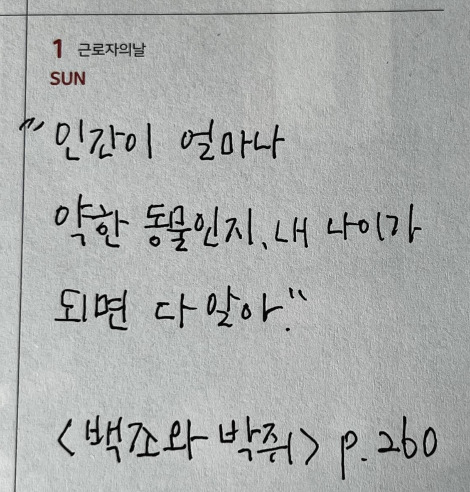 1 근로자의날
SUN
"인간이 얼마나
약한 동물인지, 내 나이가
되면 다 알아."
<백조와 박쥐> p.260